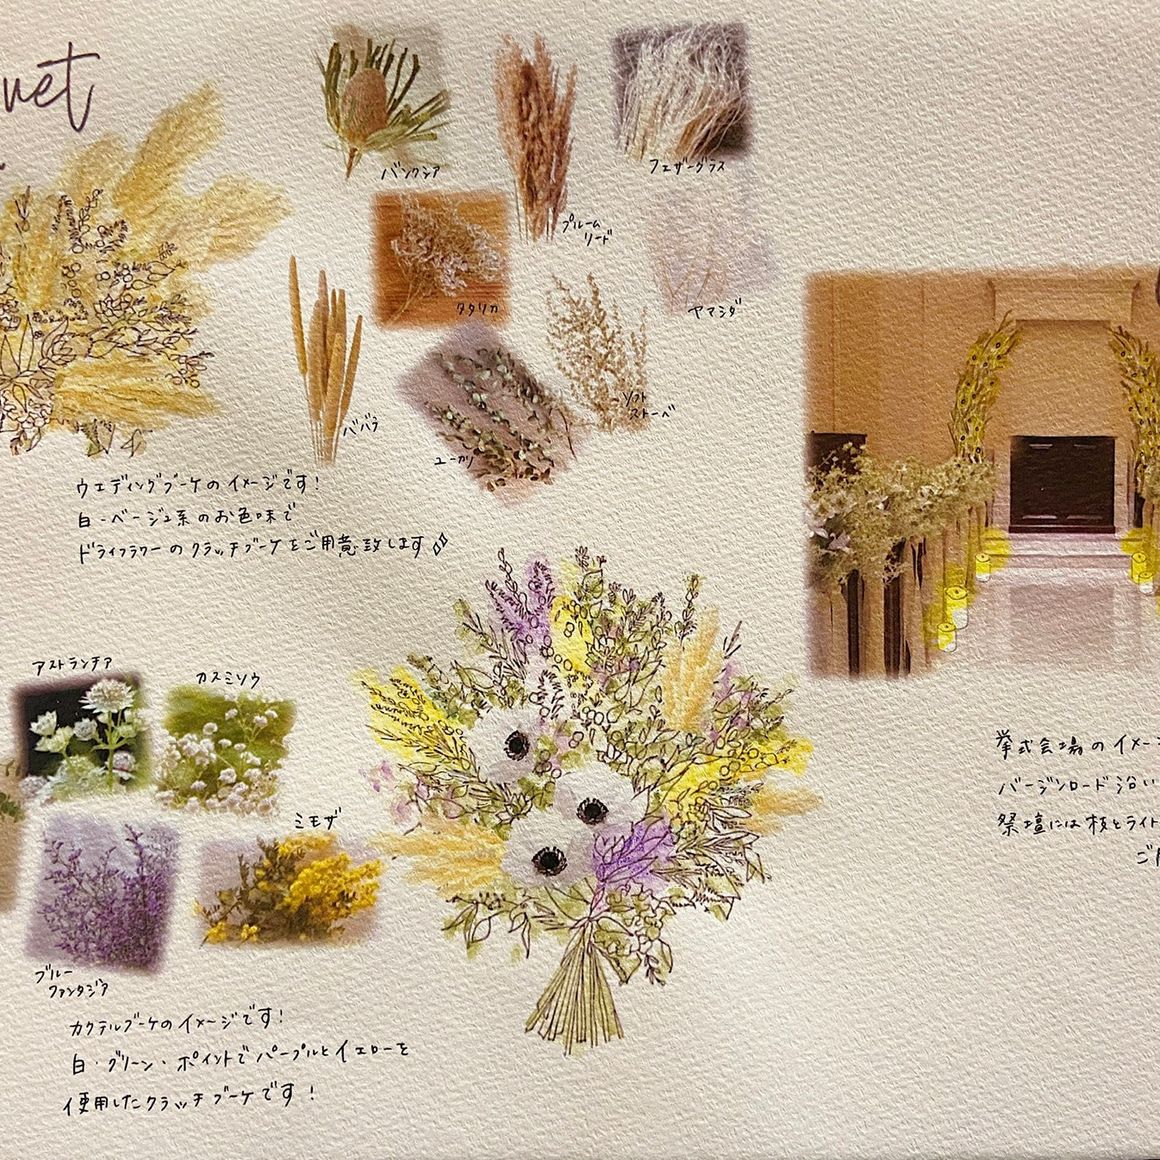 uet
バンクシア
プルーム
リード
フェザーグラス
タタリカ
ヤマシダ
ババラ
ユーカリ
ソフト
ストーベ
ウエディングブーケのイメージです!
白・ベージュ系のお色味で
ドライフラワーのクラッチブーケをご用意致します
アストランチア
カスミソウ
ミモザ
ブルー
ファンタジア
カクテルブーケのイメージです!
白・グリーン・ポイントでパープルとイエローを
使用したクラッチブーケです!
挙式会場のイメー
バージンロード沿い
祭壇には枝とライト
ご